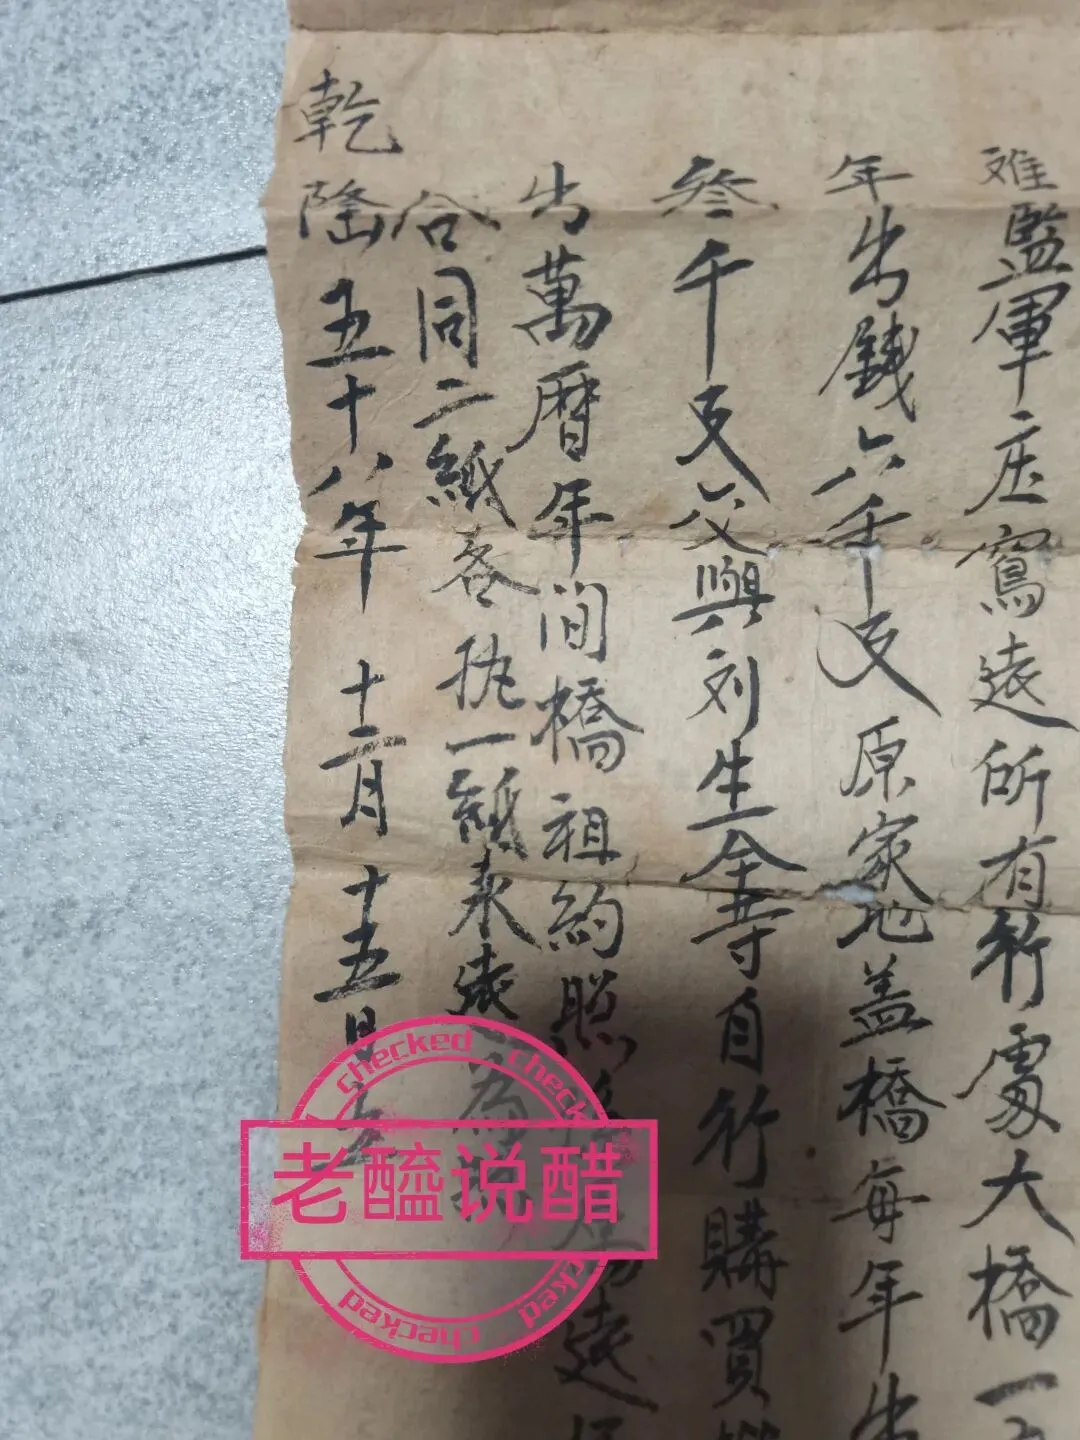 难監軍庄寫遠所有竹處大橋一
年出錢六千文原家地盖橋每年出
叁千文交與刘生全等自竹購買
出萬曆年間橋祖約照
合同二紙各执一紙永遠為照
乾隆五十八年 十二月 十五日立
checked checked
老醯说醋
checked checked